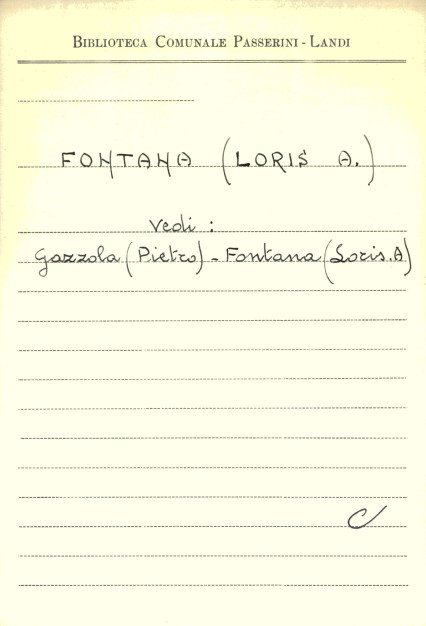 BIBLIOTECA COMUNALE PASSERINI - LANDI
FONTANA (LORIS A.)
Vedi :
Gazzola (Pietro) - Fontana (Loris. A)
C/